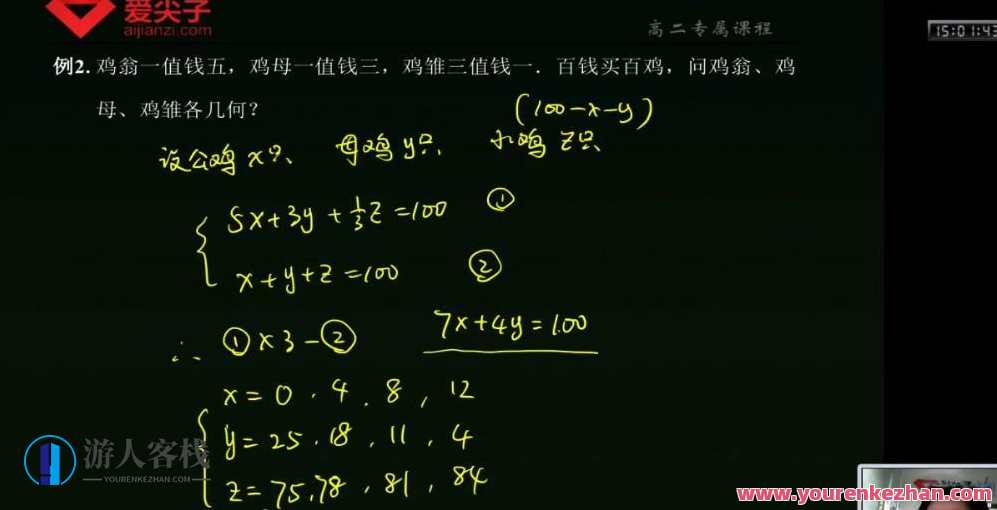 爱尖子
aijianzi.com
高二专属课程
15:01:43
例2. 鸡翁一值钱五，鸡母一值钱三，鸡雏三值钱一．百钱买百鸡，问鸡翁、鸡
母、鸡雏各几何？
(100-x-y)
设公鸡x只、 母鸡y只、 小鸡z只
5x+3y+1/3z=100 ①
x+y+z=100 ②
∴ ①×3-② 7x+4y=100
x=0.4.8,12
y=25.18.11.4
z=75.78.81,84
游人客栈
YOURENKEZHAN.COM
www.yourenkezhan.com